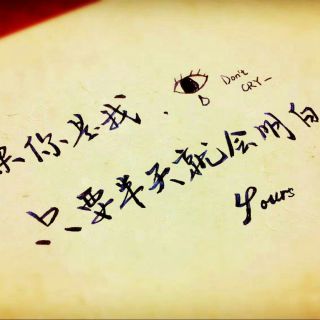 果你是我.
Don't
CRY-
只要半天就会明白
Yours